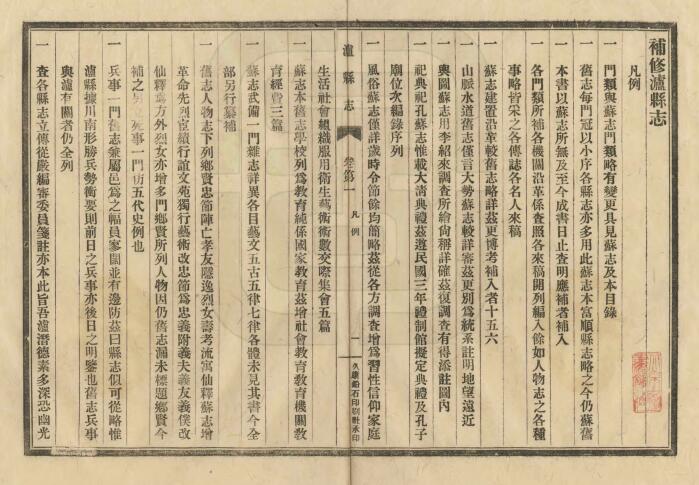 補修瀘縣志
凡例
一 門類與蘇志門類略有變更具見蘇志及本目錄
一 舊志每門冠以小序各縣志亦多用此蘇志本富順縣志略之今仍蘇舊
一 本書以蘇志所無及至今成書日止查明應補者補入
一 各門類所補各機關沿革係查照各來稿開列編入餘如人物志之各種
事略皆采之各傳誌各名人來稿
一 蘇志建置沿革較舊志略詳茲更博考補入者十五六
一 山脈水道舊志僅言大勢蘇志較詳審茲更別爲統系註明地望遠近
一 輿圖蘇志用李紹來調查所繪尚稱詳確茲復調查有得添註圖內
一 祀典祀孔蘇志惟載大清典禮茲遵民國三年禮制館擬定典禮及孔子
廟位次編錄序列
一 風俗蘇志僅詳歲時令節餘均簡略茲從各方調查增爲習性信仰家庭
瀘縣志 卷第一 凡例 一 久康鉛石印刷社承印
生活社會組織服用衛生藝術術數交際集會五篇
一 蘇志本舊志學校列爲教育純係國家教育茲增社會教育教育機關教
育經費三篇
一 蘇志武備一門雜志詳異各目藝文五古五律七律各體未見其書今全
部另行纂補
一 舊志人物志下列鄉賢忠節陣亡孝友隱逸烈女壽考流寓仙釋蘇志增
革命先烈宦績行誼文苑獨行藝術改忠節爲忠義附義夫義友義僕改
仙釋爲方外烈女亦增多門鄉賢所列人物因仍舊志漏未標題鄉賢今
補之 死事一門仿五代史例也
一 兵事一門舊志兼屬邑爲之幅員寥闊並有邊防茲曰縣志似可從略惟
瀘縣據川南形勝兵勢衝要則前日之兵事亦後日之明鑒也舊志兵事
與瀘有關者仍全列
一 查各縣志立傳從嚴編審委員箋註亦本此旨吾瀘潛德素多深恐幽光